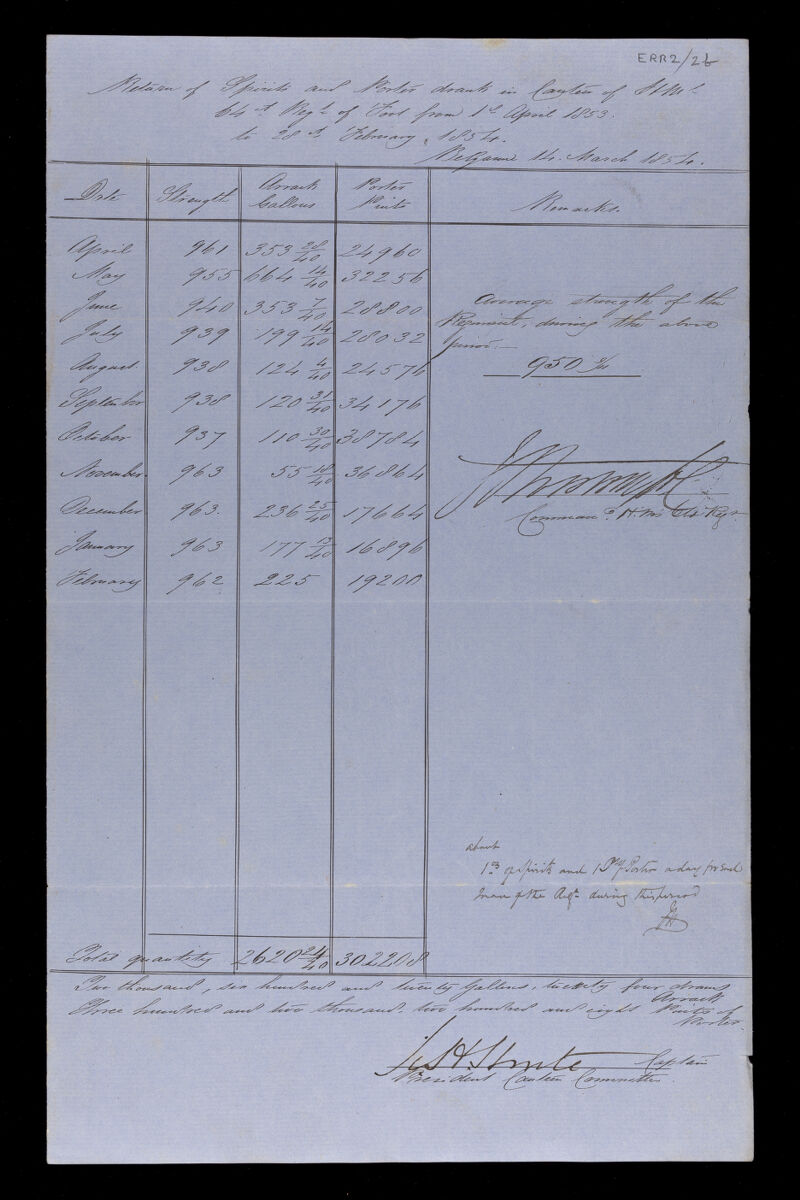 ERR2/26
Return of Spirits and Porter drank in Canteen of H.Ms
64th Regt of Foot from 1st April 1853.
to 28th February, 1854.
Belgaum 14. March 1854.
Date Strength Arrack Gallons Porter Pints Remarks.
April 961 353 28/40 24960
May 955 664 14/40 32256
June 940 353 7/40 28800
July 939 199 14/40 28032
August 938 124 4/40 24576
September 938 120 31/40 34176
October 937 110 30/40 38784
November. 963 55 18/40 36864
December 963. 236 25/40 17664
January 963 177 13/40 16896
February 962 225 19200
Average strength of the
Regiment, during the above
period.—
950
Command H.Ms 64 Regt
about
1 of Spirits and 1 of Porter a day for each
man of the Regt during this period
Total quantity 2620 24/40 302208
Two thousand, six hundred and twenty Gallons, twenty four drams Arrack
Three hundred and two thousand. two hundred and eight Pints of Porter.
Captain
President Canteen Committee.